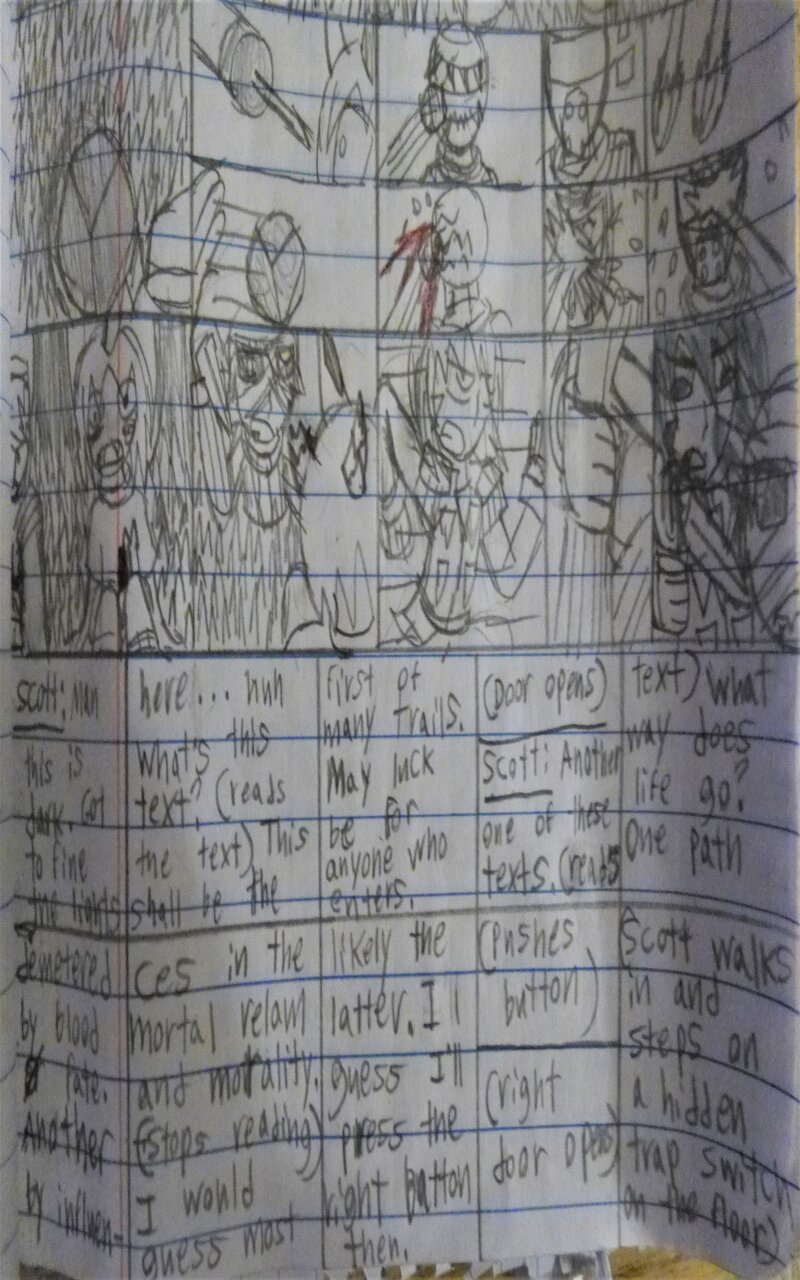 Scott: Man
this is
dark. Got
to fine
the lights
here... huh
what's this
text? (reads
the text) This
shall be the
first of
many trails.
May luck
be for
anyone who
enters.
(Door opens)
Scott: Another
one of these
texts. (reads
text) what
way does
life go?
One path
demetered
by blood
fate.
Another
by influen-
ces in the
mortal relam
and morality.
(stops reading)
I would
guess most
likely the
latter. I'll
guess I'll
press the
right button
then.
(Pushes
button)
(right
door opens)
(Scott walks
in and
steps on
a hidden
trap switch
on the floor)